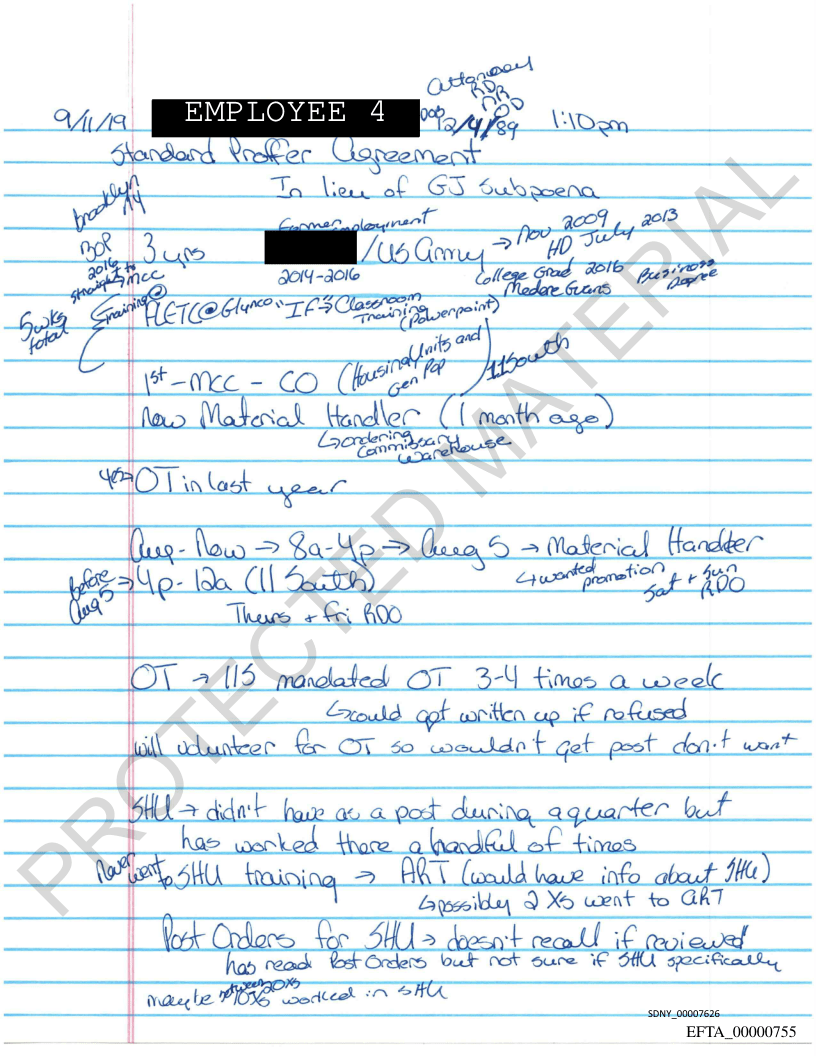 attorney
RDR
9/11/19 EMPLOYEE 4 DOB 12/4/89 1:10pm
Standard Proffer Agreement
In lieu of GJ Subpoena
brooklyn
NY
Former employment
BOP 3 yrs /US Army → Nov 2009
HD July 2013
2016
straight to
MCC
2014-2016
College Grad 2016 Business
Medgar Evers Degree
5wks
total
Training@
FLETC@Glynco "IF → Classroom
Training
(Powerpoint)
1st - MCC - CO (Housing Units and
Gen Pop
11South
Now Material Handler (1 month ago)
↳ordering
Commissary
Warehouse
yes→OT in last year
Aug-Now → 8a-4p → Aug 5 → Material Handler
↳wanted
promotion
Sat + Sun
RDO
before
Aug 5 → 4p-12a (11 South)
Thurs + Fri RDO
OT → 11S mandated OT 3-4 times a week
↳could get written up if refused
will volunteer for OT so wouldn't get post don't want
SHU → didn't have as a post during a quarter but
has worked there a handful of times
Never
went
to SHU training → ART (would have info about SHU)
↳possibly 2 Xs went to ART
Post Orders for SHU → doesn't recall if reviewed
has read Post Orders but not sure if SHU specifically
maybe between 10Xs 20Xs worked in SHU
SDNY_00007626
EFTA_00000755
PROTECTED MATERIAL